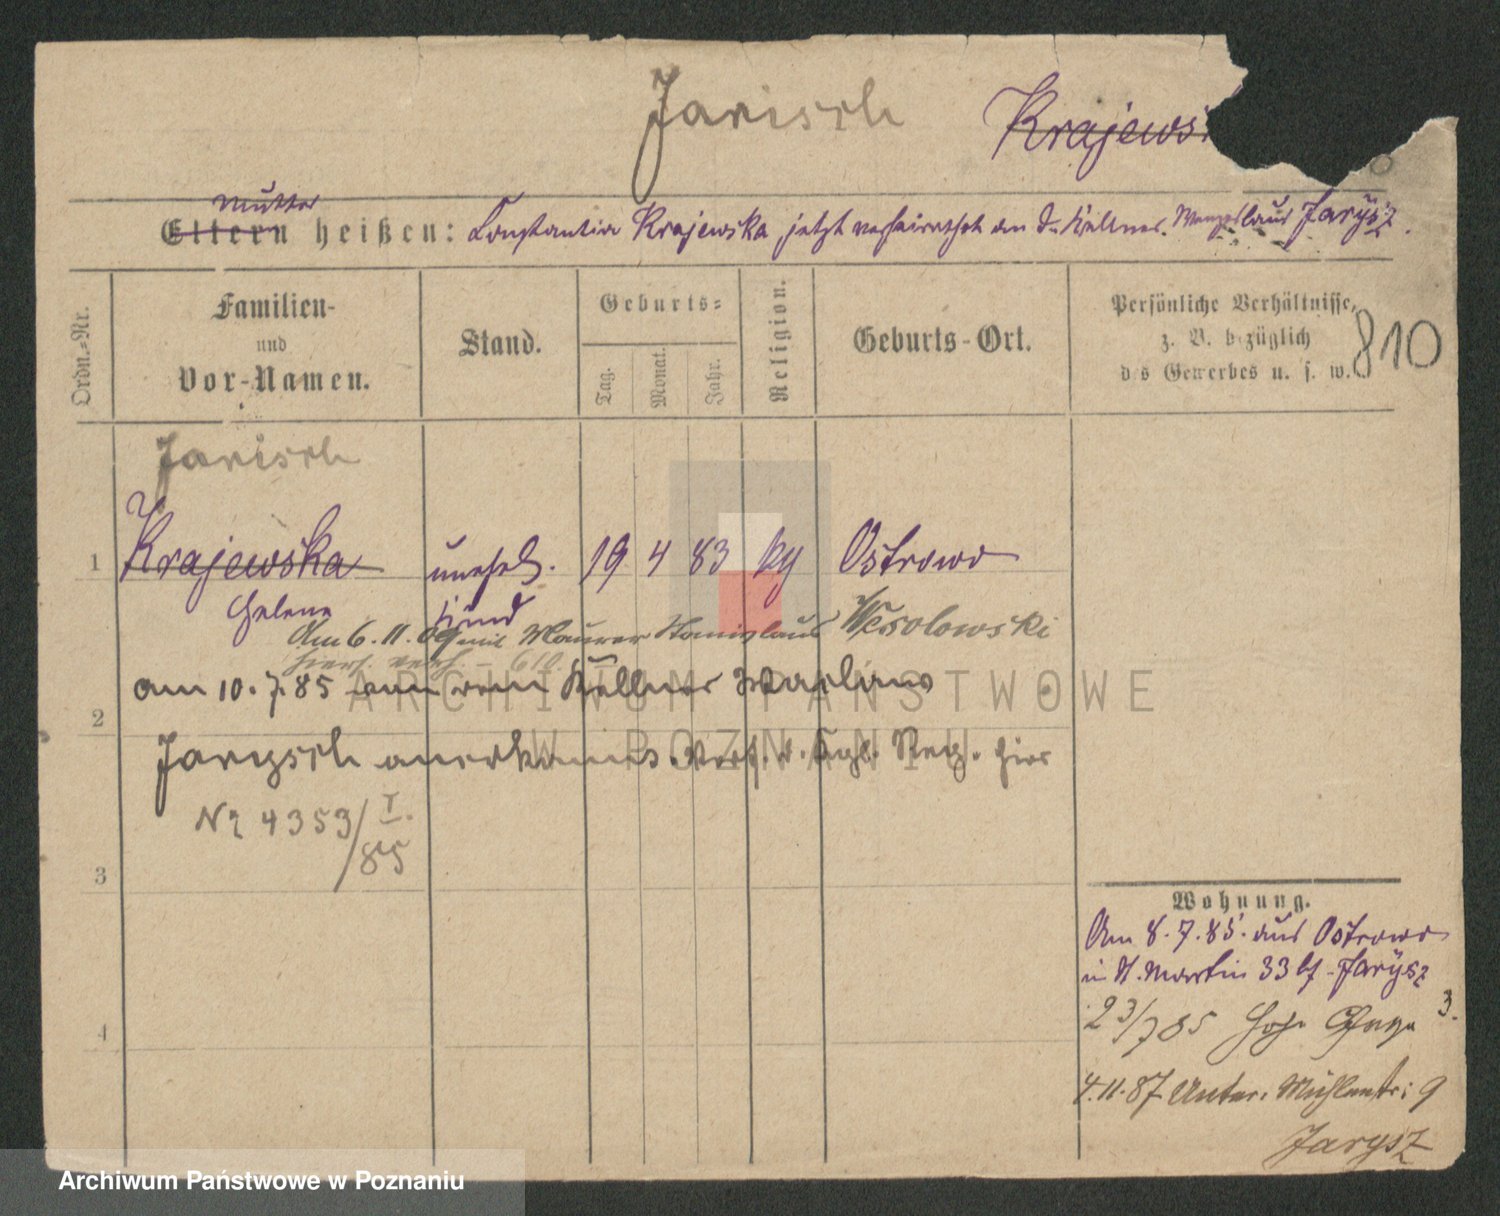 Jarisch
Krajews
Mutter
Eltern heißen: Constantia Krajewska jetzt verheirathet an d. Kellner Wenzeslaus Jarysz.
Ordn.-Nr.
Familien-
und
Vor-Namen.
Stand.
Geburts-
Tag.
Monat.
Jahr.
Religion.
Geburts-Ort.
Persönliche Verhältnisse,
z. B. bezüglich
des Gewerbes u. s. w.
810
Jarisch
1 Krajewska unehel. 19 4 83 kg Ostrowo
Helene Kind
Am 6.11.09 mit Maurer Stanislaus Wesolowski
hier verh. – 610.
am 10.7.85 vom Kellner
2
Jarysch anerkannt. Verf. d. Kgl. Reg. hier
No 4353/I.
/85
3
4
Wohnung.
Am 8.7.85. aus Ostrowo
in St. Martin 33 bf - Jarysz
23/7 85 Hohe Gasse 3.
4.11.87 Unter. Mühlenstr: 9
Jarysz
ARCHIWUM PAŃSTWOWE
W POZNANIU
Archiwum Państwowe w Poznaniu